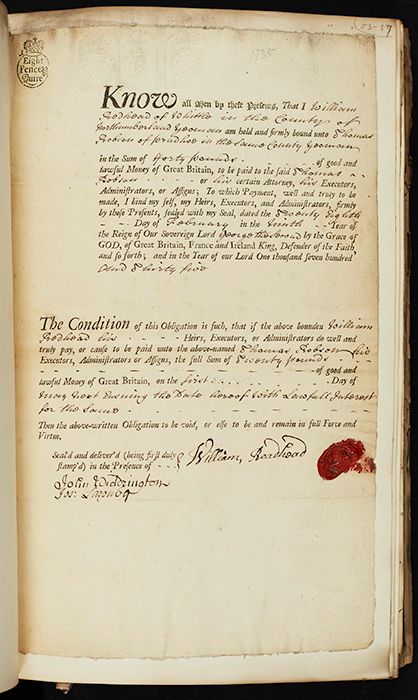 (85-87
Eight
Pence
Quire
1735
Know all Men by these Presents, That I William
Redhead of Whittle in the County of
Northumberland Yeoman am held and firmly bound unto Thomas
Robson of Prudhoe in the same County Yeoman
in the Sum of Forty pounds - - - - of good and
lawful Money of Great Britain, to be paid to the said Thomas
Robson - - - or his certain Attorney, his Executors,
Administrators, or Assigns; To which Payment, well and truly to be
made, I bind my self, my Heirs, Executors, and Administrators, firmly
by these Presents, sealed with my Seal, dated the Twenty Eighth
- - Day of February in the Ninth - - Year of
the Reign of Our Sovereign Lord George the Second by the Grace of
GOD, of Great Britain, France and Ireland King, Defender of the Faith
and so forth; and in the Year of our Lord One thousand seven hundred
And Thirty five
The Condition of this Obligation is such, that if the above bounden William
Redhead his - - - - - Heirs, Executors, or Administrators do well and
truly pay, or cause to be paid unto the above-named Thomas Robson his
Executors, Administrators or Assigns, the full Sum of Twenty pounds - -
- - - - of good and
lawful Money of Great Britain, on the first - - - - Day of
May next Ensuing the Date hereof with Lawfull Interest
for the Same - - - -
Then the above-written Obligation to be void, or else to be and remain in full Force and
Virtue.
Seal'd and deliver'd (being first duly
stamp'd) in the Presence of - - -
William Readhead
John Widdrington
Jos: